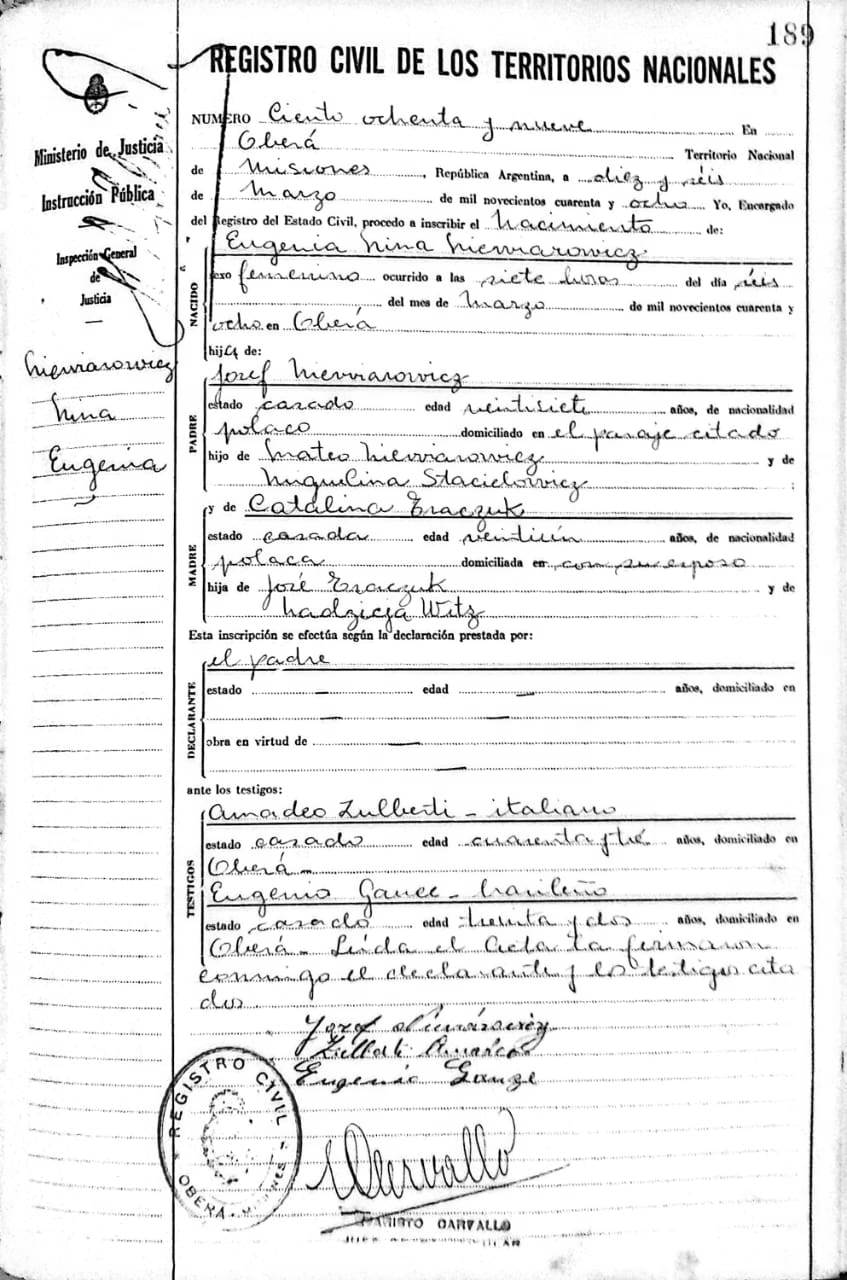 189
REGISTRO CIVIL DE LOS TERRITORIOS NACIONALES
Ministerio de Justicia
Instrucción Pública
Inspección General
de
Justicia
Niewiarowicz
Nina
Eugenia
NUMERO Ciento ochenta y nueve En
Oberá Territorio Nacional
de Misiones, República Argentina, a diez y séis
de Marzo de mil novecientos cuarenta y ocho Yo, Encargado
del Registro del Estado Civil, procedo a inscribir el Nacimiento de:
NACIDO
Eugenia Nina Niewiarowicz
sexo femenino ocurrido a las siete horas del día séis
del mes de Marzo de mil novecientos cuarenta y
ocho en Oberá
hija de:
PADRE
Josef Niewiarowicz
estado casado edad veintisiete años, de nacionalidad
polaco domiciliado en el paraje citado
hijo de Mateo Niewiarowicz y de
Miguelina Stacielowicz
MADRE
y de Catalina Traczuk
estado casada edad veintiún años, de nacionalidad
polaca domiciliada en con su esposo
hija de José Traczuk y de
Nadzieja Witz
Esta inscripción se efectúa según la declaración prestada por:
DECLARANTE
el padre
estado — edad — años, domiciliado en
— —
obra en virtud de —
—
ante los testigos:
TESTIGOS
Amadeo Zulberti - italiano
estado casado edad cuarenta y tré años, domiciliado en
Oberá -
Eugenio Gauce - brasileño
estado casado edad treinta y dos años, domiciliado en
Oberá - Leída el Acta la firmaron
conmigo el declarante y los testigos cita
dos
Eugenio Gauze
REGISTRO CIVIL
OBERÁ - MISIONES
CARVALLO